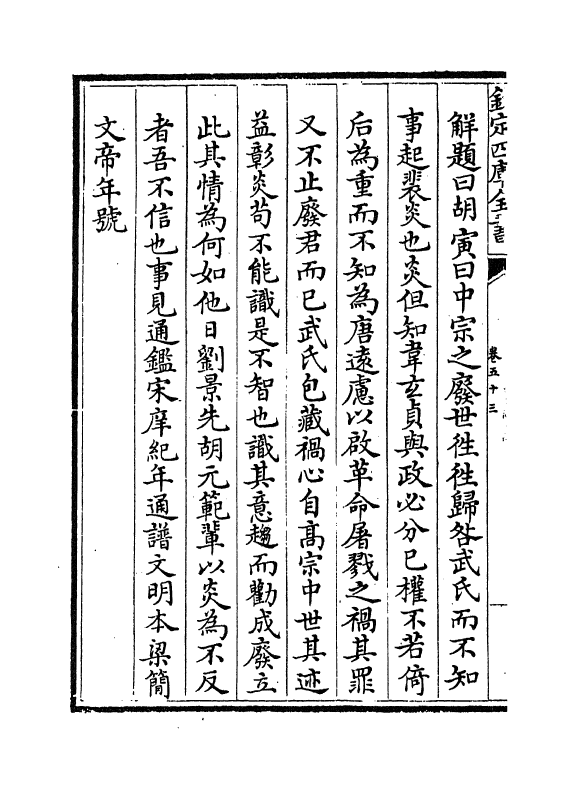 欽定四庫全書
卷五十三
解題曰胡寅曰中宗之廢世徃徃歸咎武氏而不知
事起裴炎也炎但知韋玄貞與政必分已權不若倚
后為重而不知為唐遠慮以啟革命屠戮之禍其罪
又不止廢君而已武氏包藏禍心自髙宗中世其迹
益彰炎苟不能識是不智也識其意趨而勸成廢立
此其情為何如他日劉景先胡元範輩以炎為不反
者吾不信也事見通鑑宋庠紀年通譜文明本梁簡
文帝年號